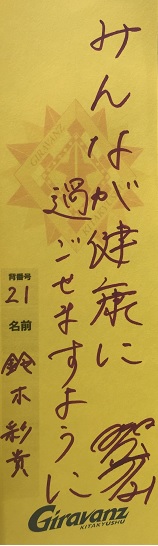 みんなが健康に
過ごせますように
背番号
21
名前
鈴木彩貴
GIRAVANZ
Giravanz
KITAKYUSHU